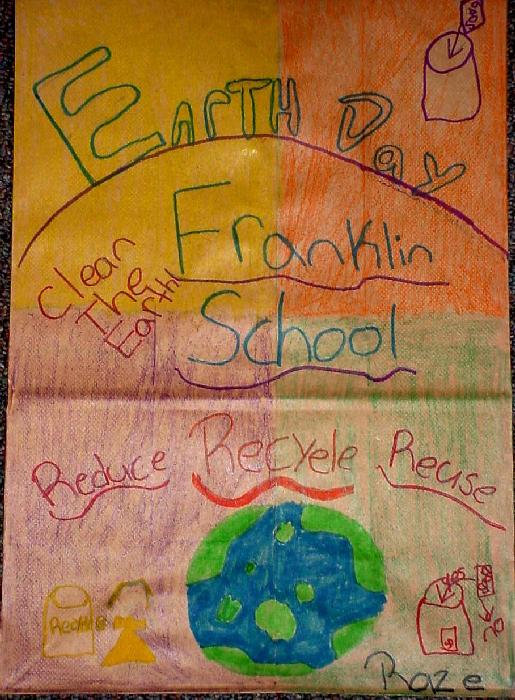 Earth Day
Franklin
School
Clean
The
Earth!
Reduce Recycle Recuse
Raze